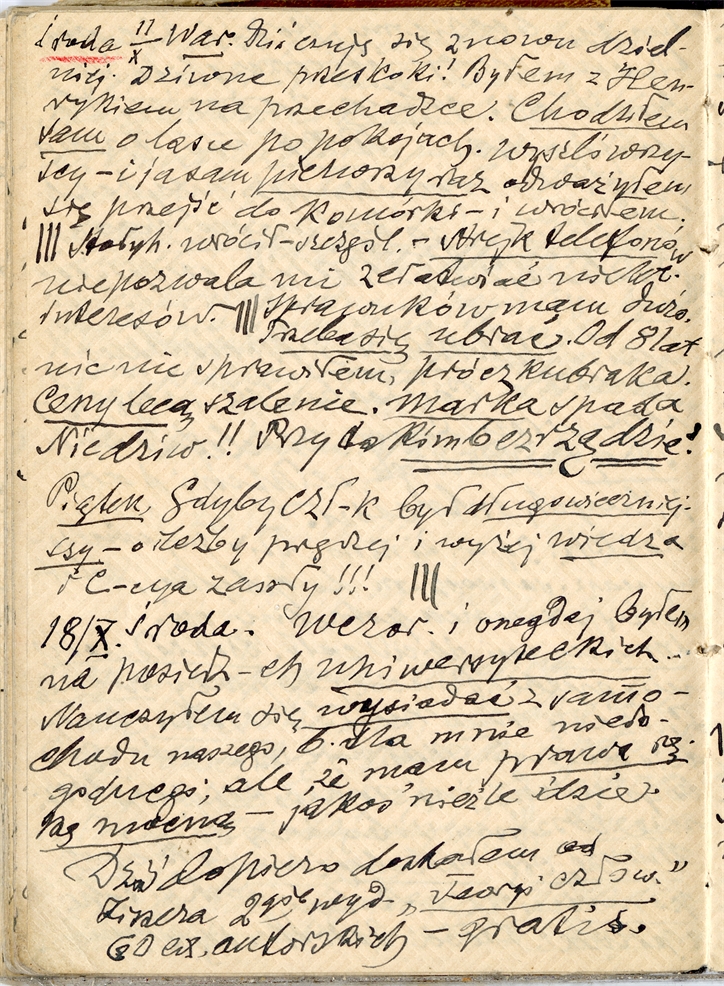 środa 11/X War. Dziś czuję się znowu dziel-
niej. Dziwne przeskoki! Byłem z Hen-
rykiem na przechadzce. Chodziłem
sam o lasce po pokojach. wyszli wszy-
scy – i ja sam pierwszy raz odważyłem
się przejść do komórki – i wróciłem.
||| Stołyh. wrócił – szczgól. – strejk telefonów
niepozwala mi załatwiać niektr.
interesów. ||| Sprawunków mam dużo.
Trzeba się ubrać. Od 8 lat
nic nie sprawiłem, prócz kubraka.
Ceny lecą szalenie. Marka spada
Niedziw!! Przy takim bezrządzie!
Piątek, Gdyby czł-k był długowieczniej-
szy – oileżby prędzej i wyżej wiedza
i C-cya zaszły!!! |||
18/X. środa. Wczor. i onegdaj byłem
na posiedz-ch uniwersyteckich.
Nauczyłem się wysiadać z samo-
chodu naszego, b. dla mnie niedo-
godnego; ale, że mam prawą rę-
kę mocną – jakoś nieźle idzie.
Dziś dopiero dostałem od
2gie wyd. „Teorji człow."
60 ex. autorskich – gratis.